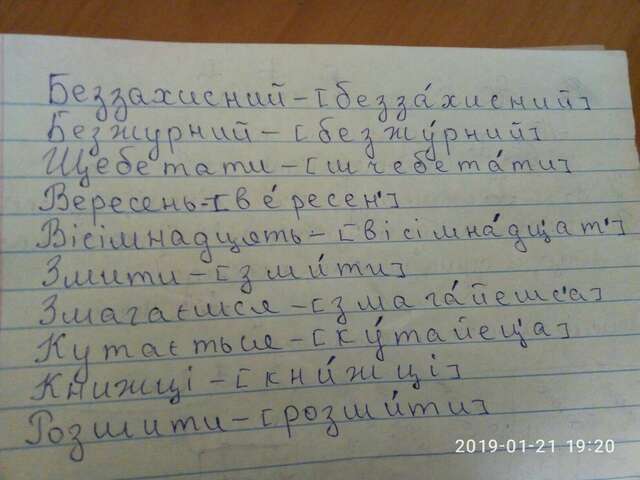 Беззахисний - [безза́хисний]
Безжурний - [безжу́рний]
Щебетати - [шчебета́ти]
Вересень - [ве́ресен']
Вісімнадцять - [вісімна́дц'ат']
Змити - [зми́ти]
Змагаєшся - [змага́йешс'а]
Кутається - [ку́тайец'а]
Книжці - [кни́жці]
Розшити - [розши́ти]
2019-01-21 19:20